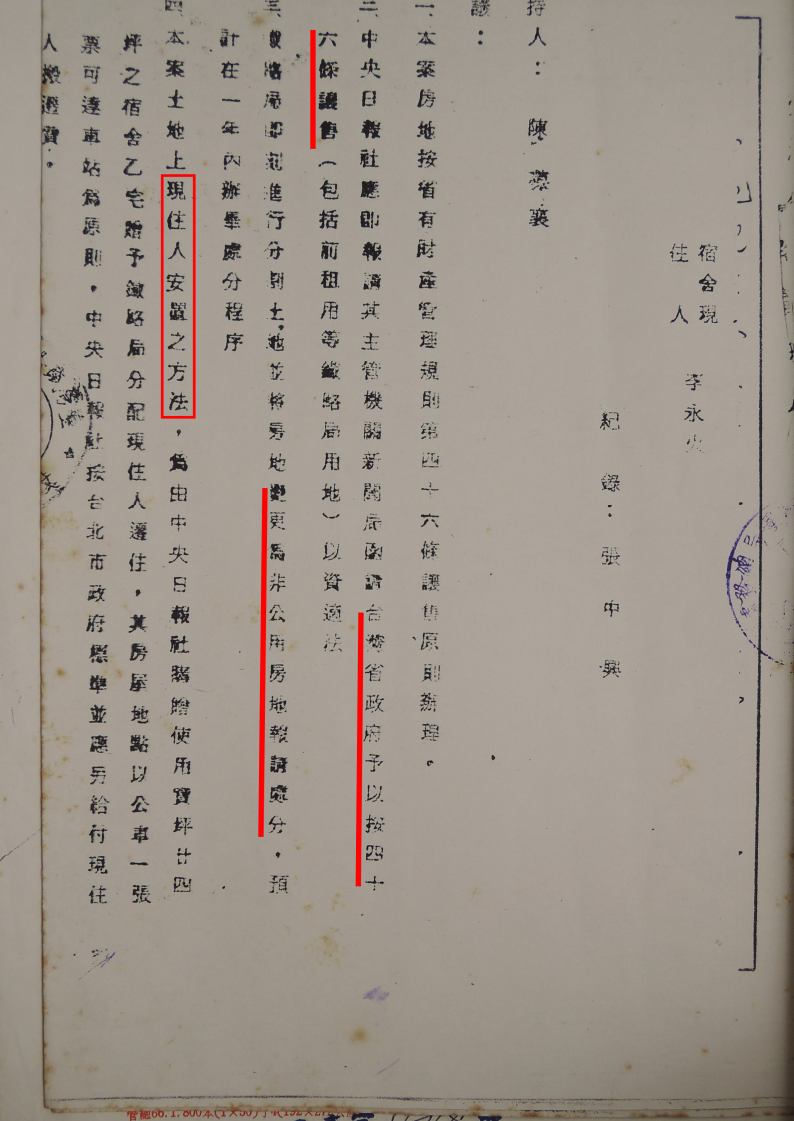 宿舍現
住人 李永火
紀錄：張中興
持人：陳樹襄
議：
一、本案房地按省有財產管理規則第四十六條讓售原則辦理。
二、中央日報社應即報請其主管機關新聞局函請台灣省政府予以按四十
六條讓售（包括前租用等鐵路局用地）以資適法
三、鐵路局即刻進行分割土地並將房地變更為非公用房地報請處分，預
計在一年內辦畢處分程序
四、本案土地上現住人安置之方法，為由中央日報社購贈使用實坪廿四
坪之宿舍乙宅贈予鐵路局分配現住人遷住，其房屋地點以公車一張
票可達車站為原則，中央日報社按台北市政府標準並應另給付現住
人搬遷費。